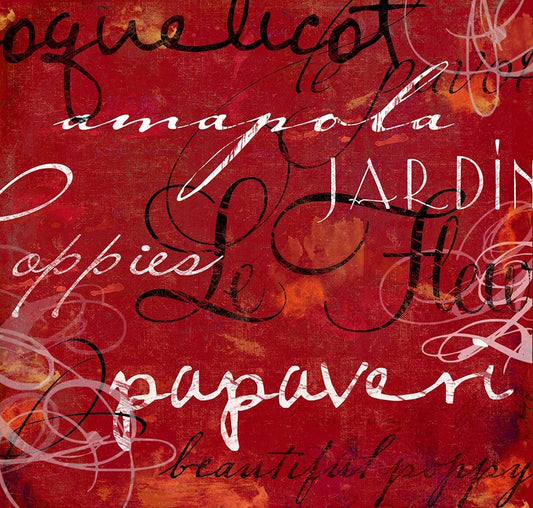 oquelicot
le pavot
amapola
JARDÍN
Le Fleur
Poppies
papaveri
beautiful poppy